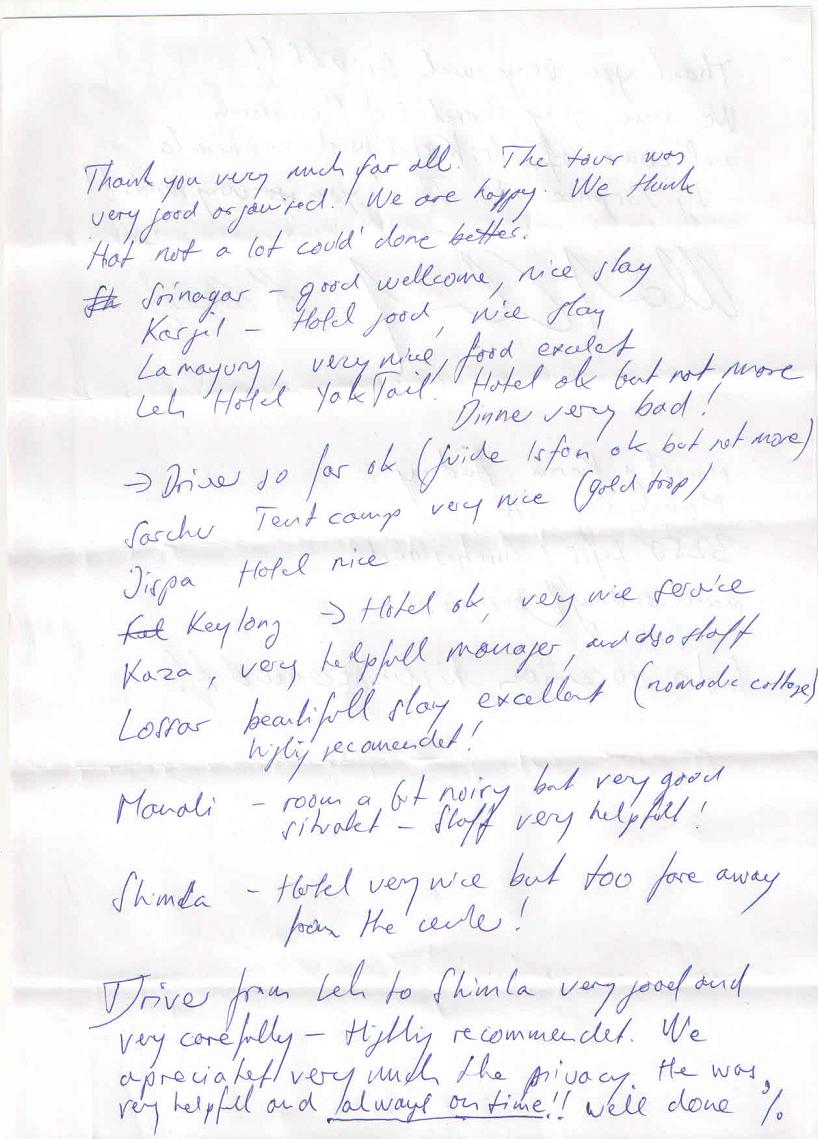 Thank you very much for all. The tour was
very good organised! We are happy. We think
that not a lot could' done better.
Srinagar – good wellcome, nice stay
Kargil – Hotel good, nice stay
Lamayuru, very nice, food excelet
Leh Hotel Yak Tail! Hotel ok but not more
Dinner very bad!
→ Driver so far ok (Guide ok but not more)
Sarchu Tent camp very nice (gold trop)
Jispa Hotel nice
Keylong → Hotel ok, very nice service
Kaza, very helpfull manager, and also staff
Lossar beautifull stay excellent (nomadic cottage)
highly recomendet!
Manali – room a bit noisy but very good
situatet – Staff very helpfull!
Shimla – Hotel very nice but too fare away
from the center!
Driver from Leh to Shimla very good and
very carefully – Highly recommendet. We
apreciatet very much the privacy. He was,
very helpfull and always on time!! Well done %